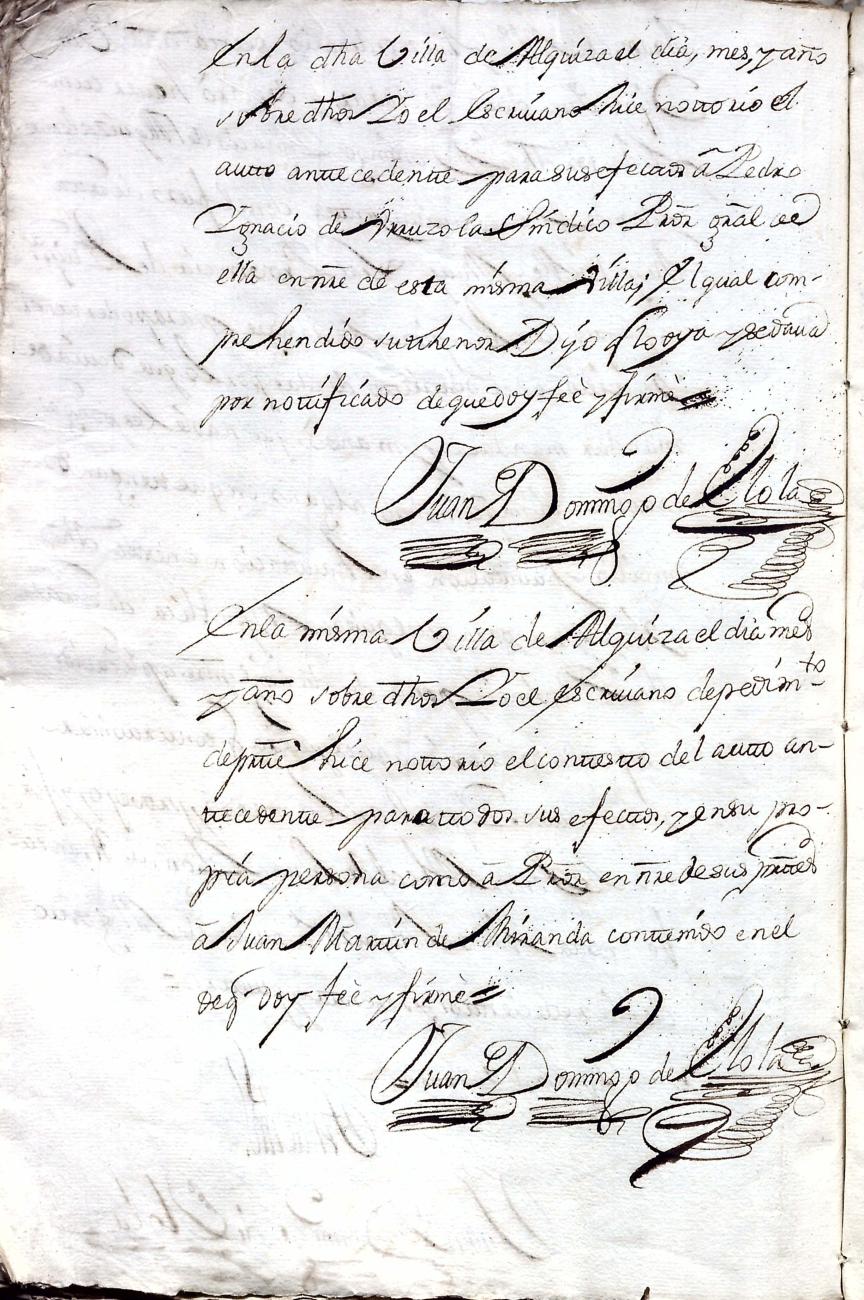 En la dha Villa de Alquiza el dia, mes, y año
sobre dhos Yo el Escriuano hice nottorio el
autto anttecedentte para sus efectos â Pedro
Ygnacio de Yruzola Sindico Prõr gñal de
ella en nr̃e de esta misma Villa; El qual com-
prehendido su tthenor Dijo q̃ lo oya y se daua
por nottificado de que doy feè y firmè =
Juan Domingo de Elola
En la misma Villa de Alquiza el dia mes
y año sobre dhos Yo el Escriuano de pedimto
de ptte hice nottorio el conttestto del autto an-
ttecedentte para ttodos sus efecttos, y en su pro-
pria persona como â Prõr en nr̃e de sus parttes
â Juan Marttin de Miranda conttenido en el
de q̃ doy feè y firmè =
Juan Domingo de Elola